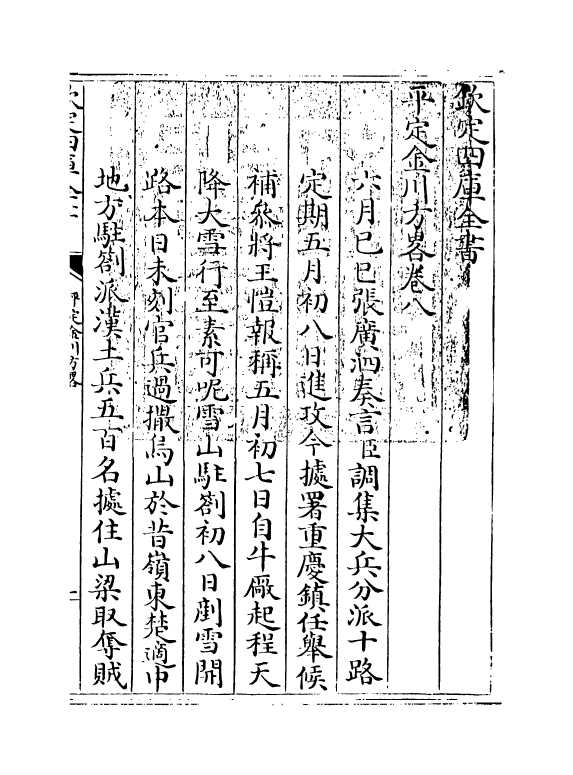 欽定四庫全書
平定金川方畧卷八
六月己巳張廣泗奏言臣調集大兵分派十路
定期五月初八日進攻今據署重慶鎮任舉候
補叅將王愷報稱五月初七日自牛廠起程天
降大雪行至素可呢雪山駐劄初八日剷雪開
路本日未刻官兵過撒烏山於昔嶺東楚適中
地方駐劄派漢土兵五百名據住山梁取奪賊
欽定四庫全書
平定金川方畧